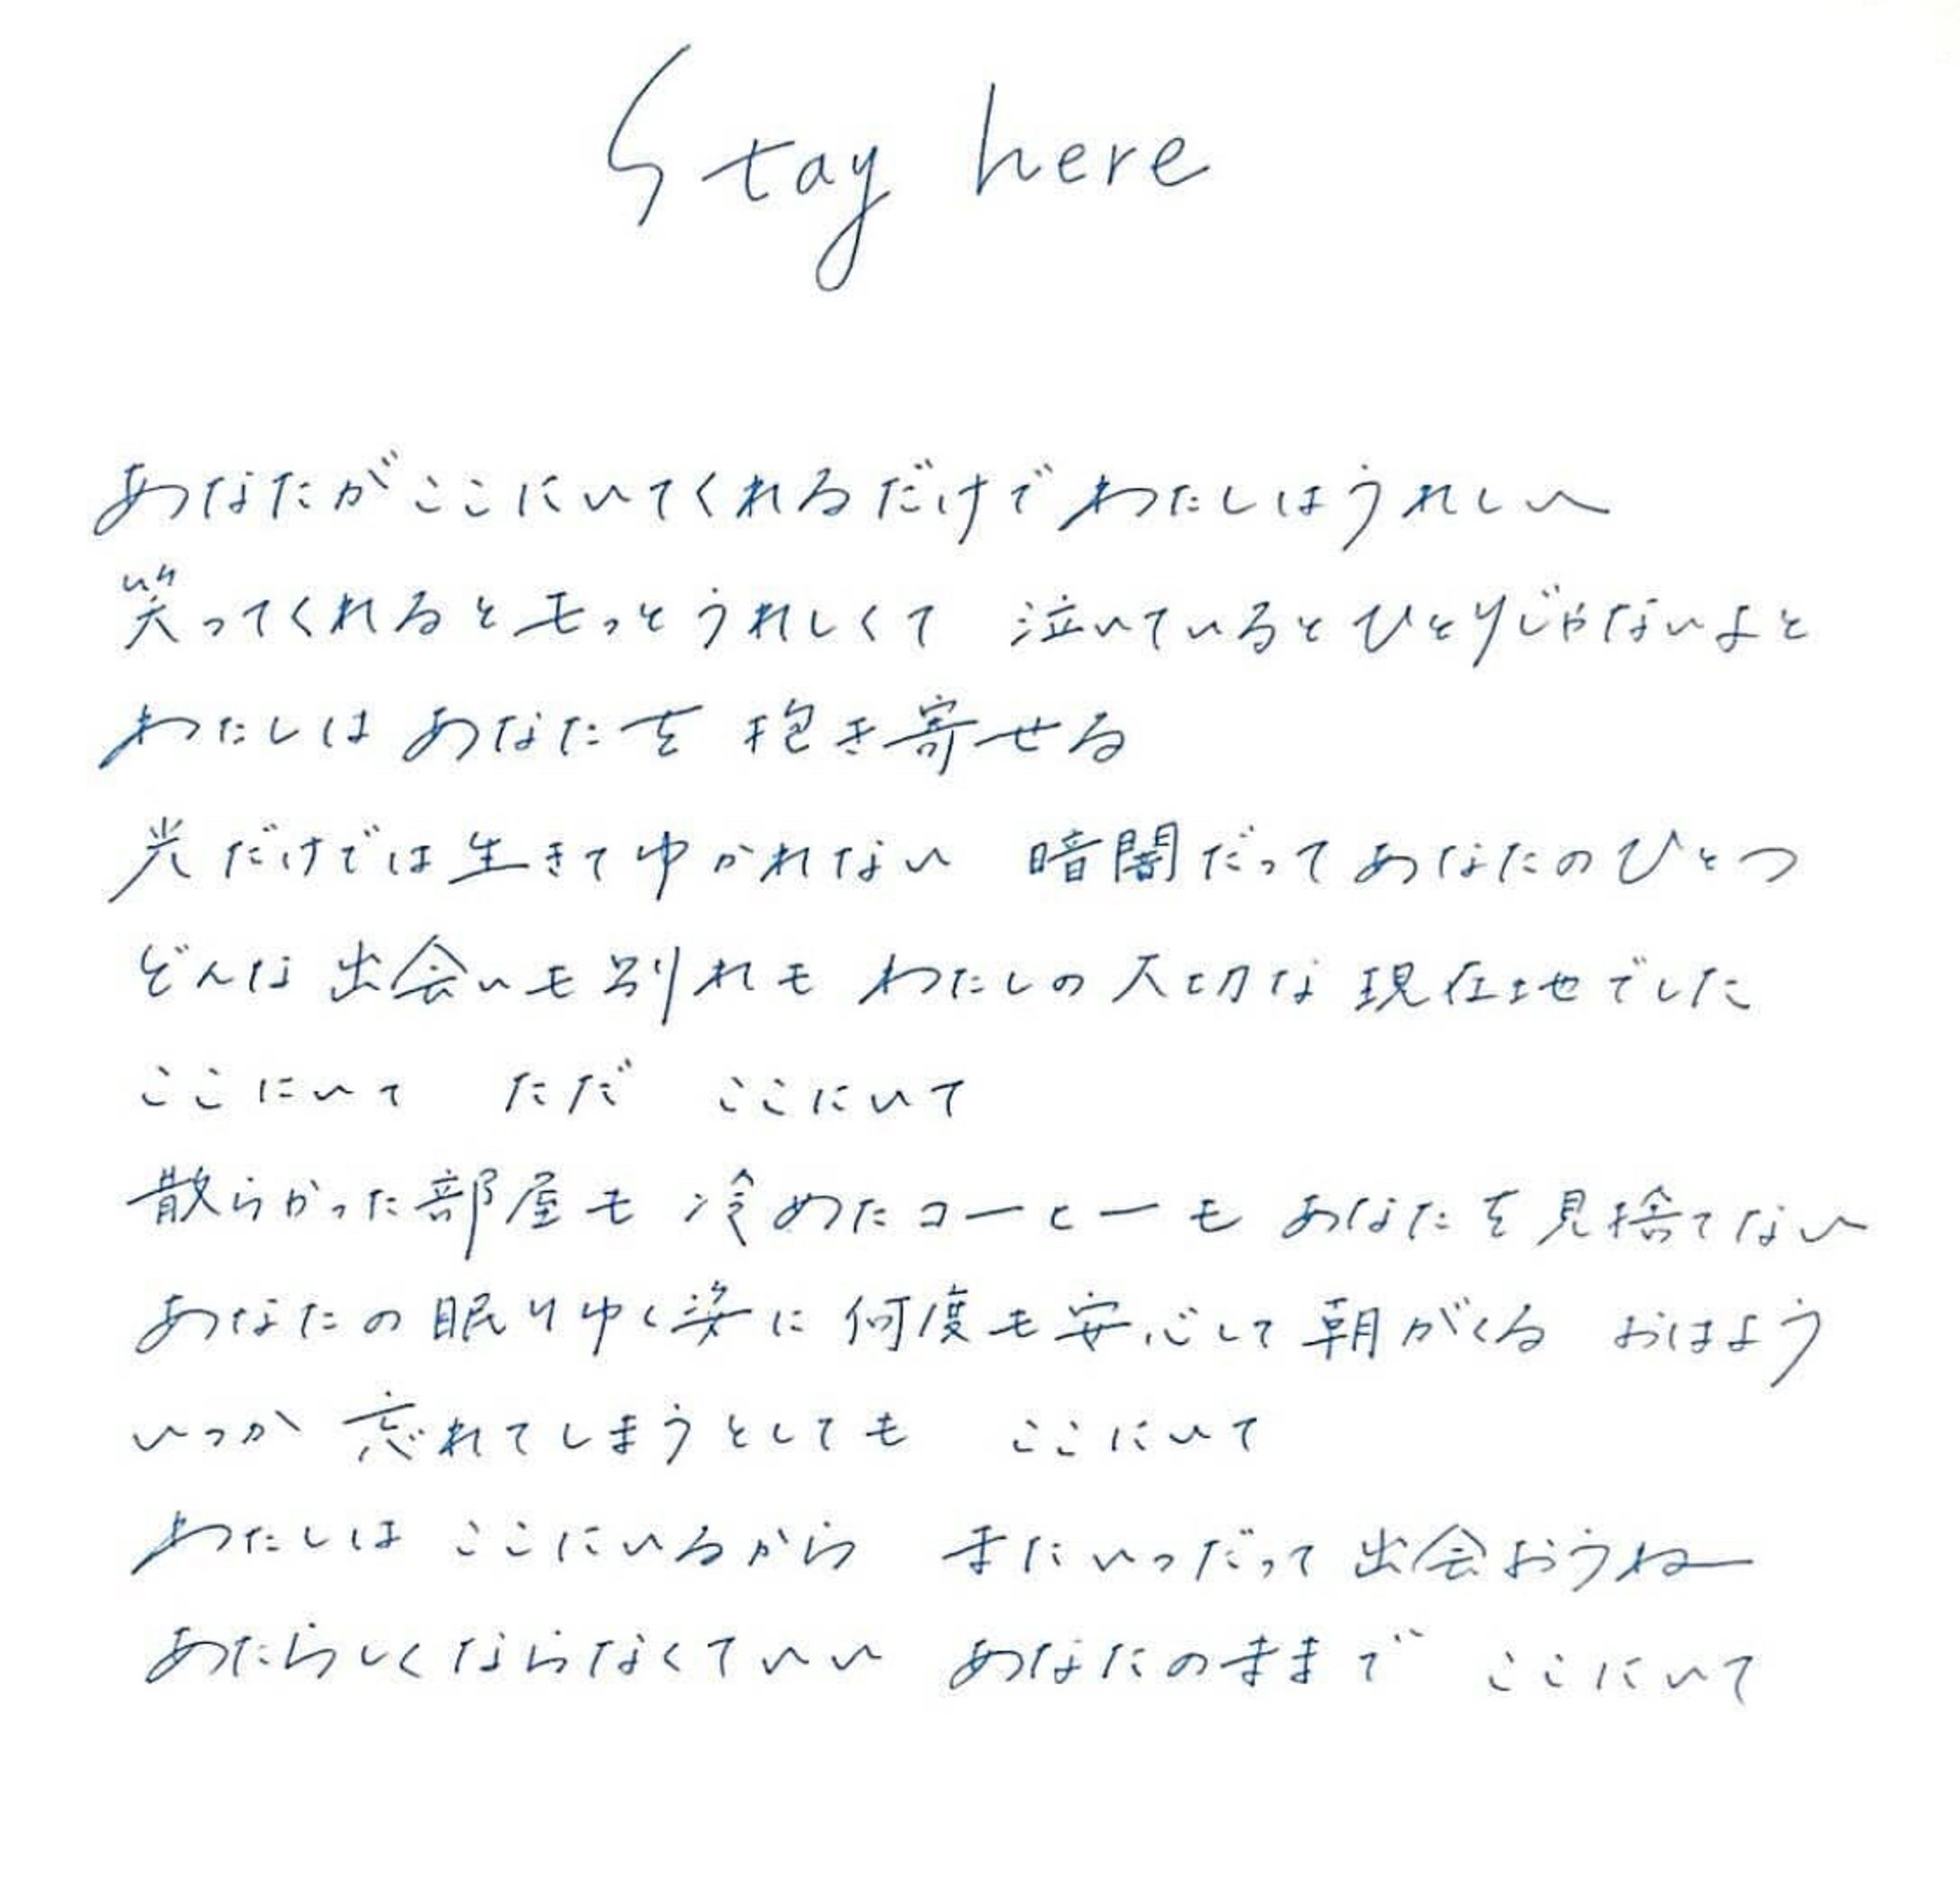 Stay here
あなたがここにいてくれるだけで わたしはうれしい
笑ってくれるともっとうれしくて 泣いているとひとりじゃないよと
わたしは あなたを 抱き寄せる
光だけでは生きてゆかれない 暗闇だってあなたのひとつ
どんな出会いも別れも わたしの大切な現在地でした
ここにいて ただ ここにいて
散らかった部屋も 冷めたコーヒーも あなたを見捨てない
あなたの眠りゆく姿に 何度も安心して朝がくる おはよう
いつか 忘れてしまうとしても ここにいて
わたしは ここにいるから またいつだって出会おうね
あたらしくならなくていい あなたのままで ここにいて